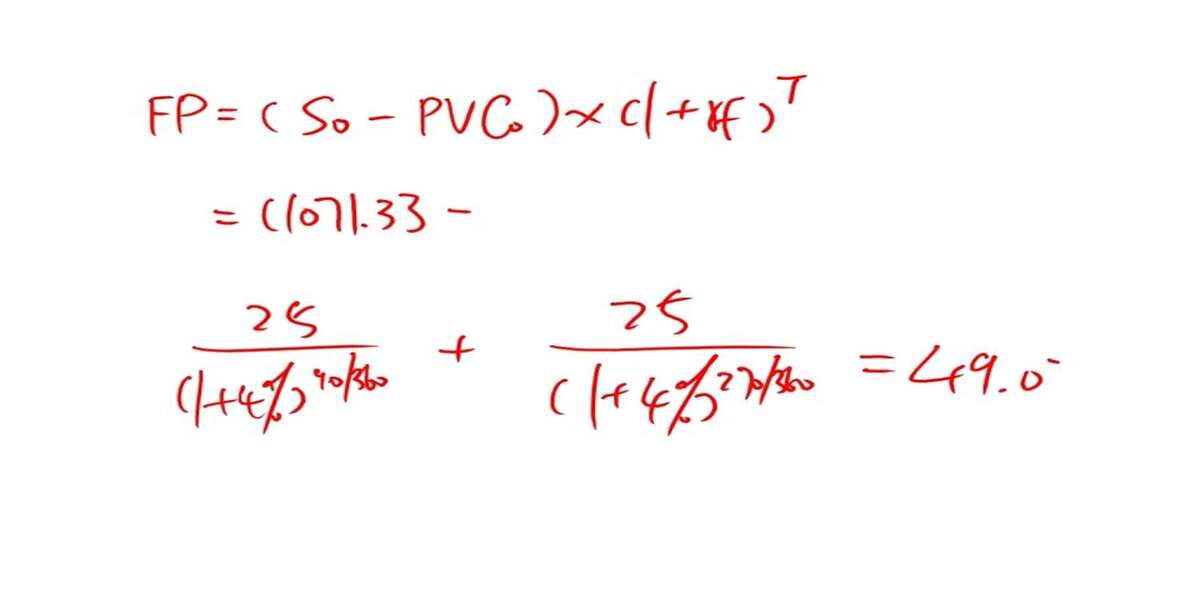 FP = (S₀ - PVC₀) × (1+rf)ᵀ
= (1071.33 -
25/(1+4%)^90/360 + 25/(1+4%)^270/360 = 49.0